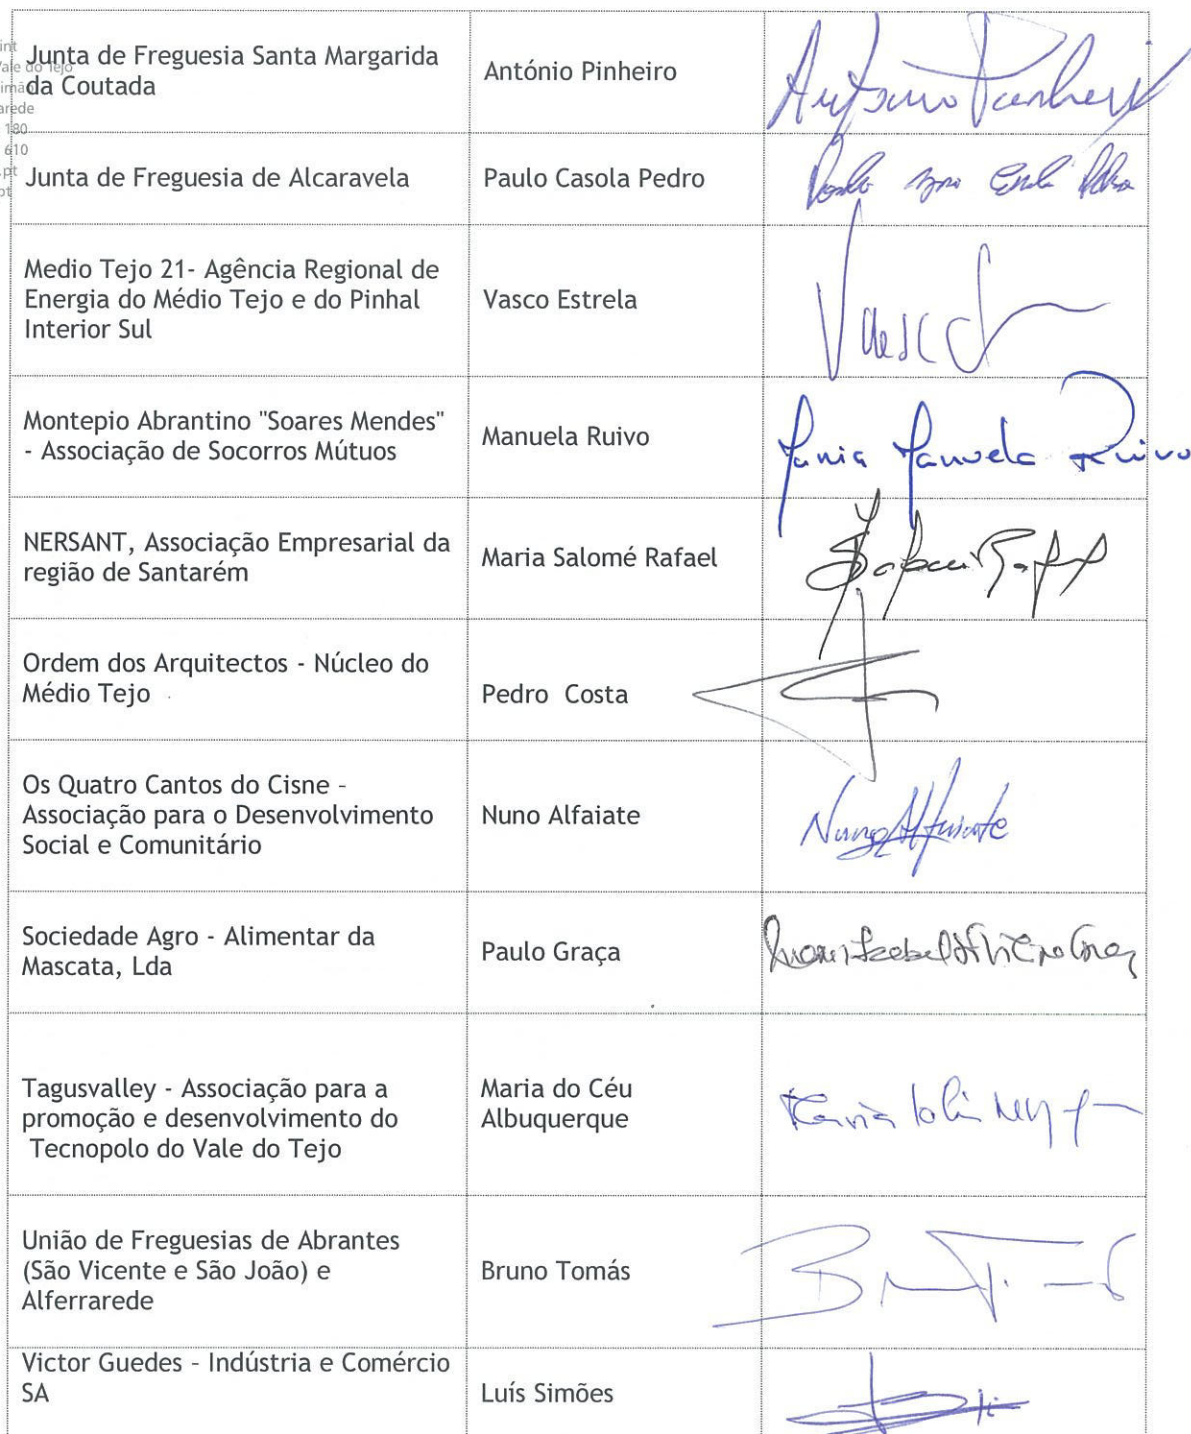 Junta de Freguesia Santa Margarida
da Coutada
António Pinheiro
António Pinheiro
180
610
Junta de Freguesia de Alcaravela
Paulo Casola Pedro
Medio Tejo 21- Agência Regional de
Energia do Médio Tejo e do Pinhal
Interior Sul
Vasco Estrela
Vasco
Montepio Abrantino "Soares Mendes"
- Associação de Socorros Mútuos
Manuela Ruivo
Maria Manuela Ruivo
NERSANT, Associação Empresarial da
região de Santarém
Maria Salomé Rafael
Ordem dos Arquitectos - Núcleo do
Médio Tejo
Pedro Costa
Os Quatro Cantos do Cisne -
Associação para o Desenvolvimento
Social e Comunitário
Nuno Alfaiate
Nuno Alfaiate
Sociedade Agro - Alimentar da
Mascata, Lda
Paulo Graça
Tagusvalley - Associação para a
promoção e desenvolvimento do
Tecnopolo do Vale do Tejo
Maria do Céu
Albuquerque
União de Freguesias de Abrantes
(São Vicente e São João) e
Alferrarede
Bruno Tomás
Victor Guedes – Indústria e Comércio
SA
Luís Simões